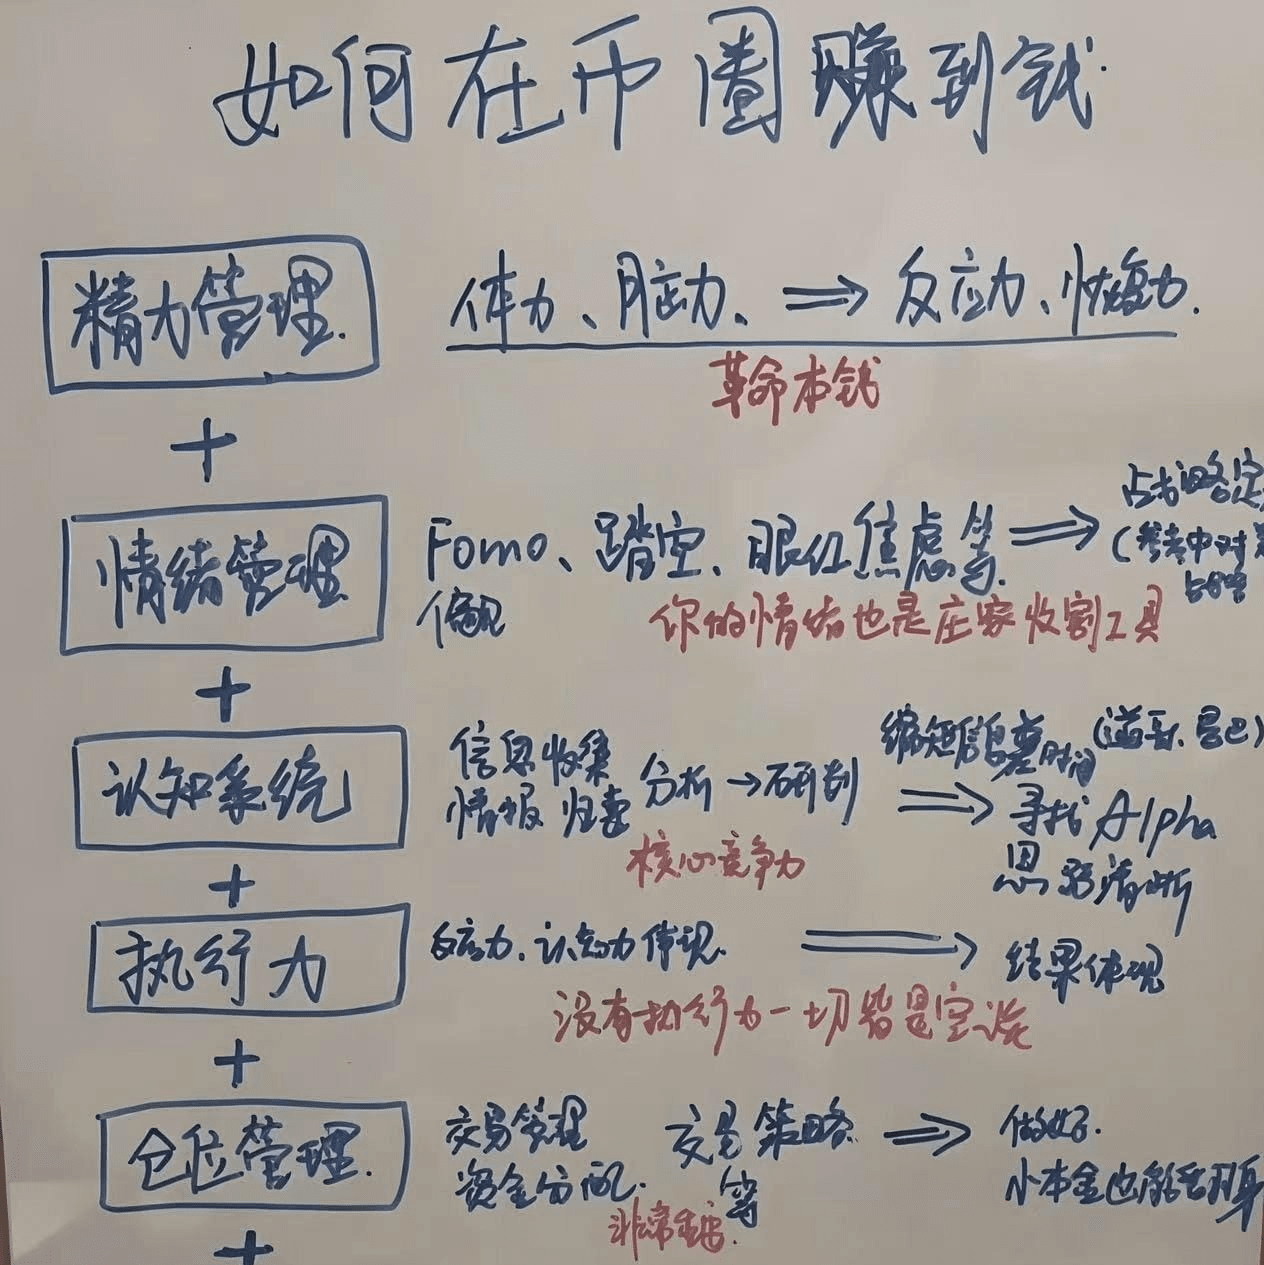 如何在币圈赚到钱.
精力管理.
体力、脑力、⇒反应力、恢复力.
革命本钱
+
情绪管理
Fomo、踏空、眼红焦虑等.⇒
偏见
(参考中对
你的情绪也是庄家收割工具
+
认知系统
信息收集
情报归类
分析→研判
⇒
缩短信息差时间
寻找Alpha
思路清晰
核心竞争力
+
执行力
反应力、认知力体现.⇒结果体现
没有执行力一切皆是空谈
+
仓位管理.
交易管理
资金分配.
交易策略
等
⇒
做好.
小本金也能活翻身
非常重要.
+